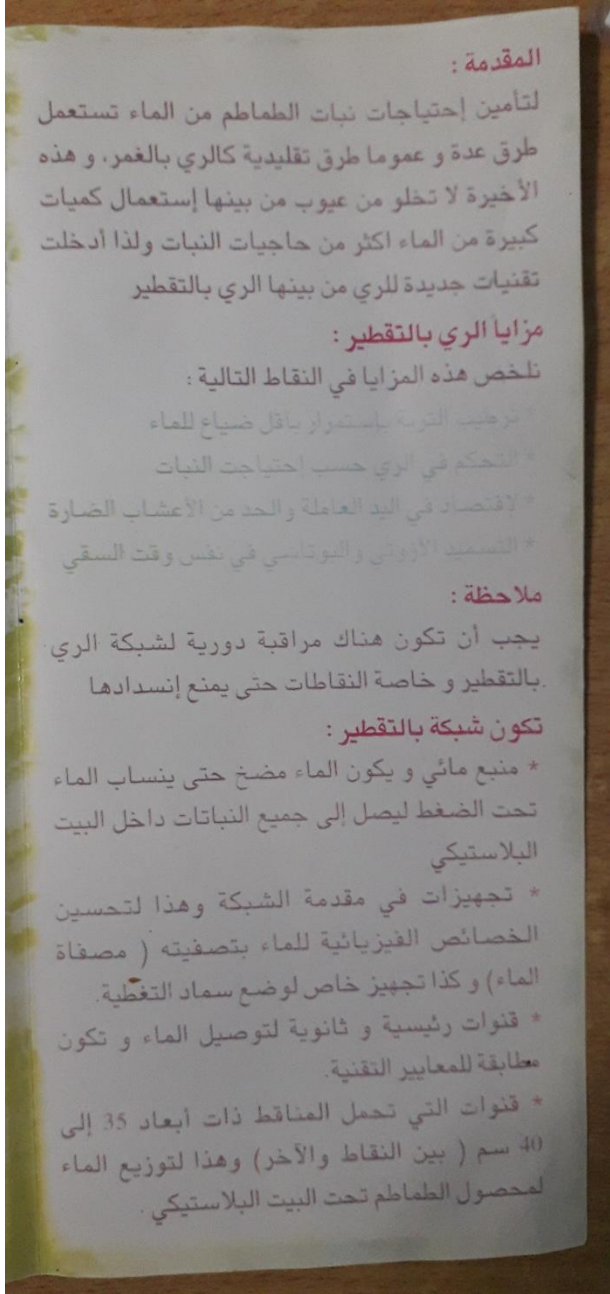 المقدمة :
لتأمين إحتياجات نبات الطماطم من الماء تستعمل
طرق عدة و عموما طرق تقليدية كالري بالغمر، و هذه
الأخيرة لا تخلو من عيوب من بينها إستعمال كميات
كبيرة من الماء اكثر من حاجيات النبات ولذا أدخلت
تقنيات جديدة للري من بينها الري بالتقطير
مزايا الري بالتقطير :
نلخص هذه المزايا في النقاط التالية :
* ترطيب التربة بإستمرار بأقل ضياع للماء
* التحكم في الري حسب إحتياجت النبات
* لإقتصاد في اليد العاملة والحد من الأعشاب الضارة
* التسميد الأزوتي والبوتاسي في نفس وقت السقي
ملاحظة :
يجب أن تكون هناك مراقبة دورية لشبكة الري
بالتقطير و خاصة النقاطات حتى يمنع إنسدادها.
تكون شبكة بالتقطير :
* منبع مائي و يكون الماء مضخ حتى ينساب الماء
تحت الضغط ليصل إلى جميع النباتات داخل البيت
البلاستيكي
* تجهيزات في مقدمة الشبكة وهذا لتحسين
الخصائص الفيزيائية للماء بتصفيته ( مصفاة
الماء) و كذا تجهيز خاص لوضع سماد التغطية.
* قنوات رئيسية و ثانوية لتوصيل الماء و تكون
مطابقة للمعايير التقنية.
* قنوات التي تحمل المناقط ذات أبعاد 35 إلى
40 سم ( بين النقاط والآخر) وهذا لتوزيع الماء
لمحصول الطماطم تحت البيت البلاستيكي .